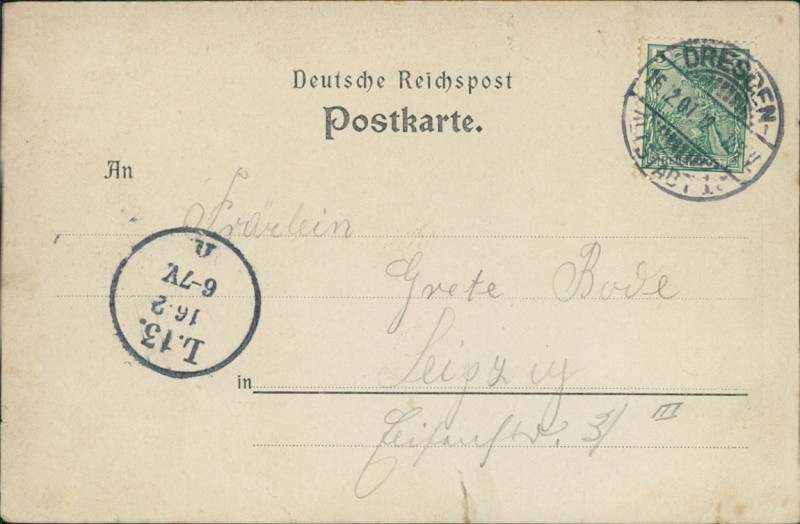 Deutsche Reichspost
Postkarte.
An
Fräulein
Grete Bode
in Leipzig
3/III
5
DRESDEN-
ALTSTADT 1.
16.2.01.
L.13.
16.2
6-7V.